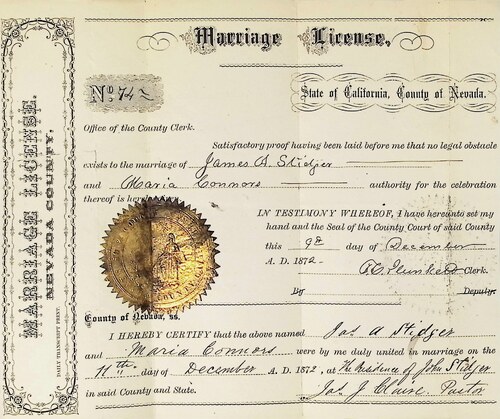 Marriage License.
No. 742
State of California, County of Nevada.
Office of the County Clerk.
Satisfactory proof having been laid before me that no legal obstacle
exists to the marriage of James A. Stidger
and Maria Connors authority for the celebration
thereof is
IN TESTIMONY WHEREOF, I have hereunto set my
hand and the Seal of the County Court of said County
this 9th day of December
A. D. 1872.
Clerk.
By Deputy.
County of Nevada, ss.
I HEREBY CERTIFY that the above named Jas A Stidger
and Maria Connors were by me duly united in marriage on the
11th day of December A. D. 1872, at the Residence of John Stidger
in said County and State.
Jas. J. Claise. Pastor
MARRIAGE LICENSE.
NEVADA COUNTY.
DAILY TRANSCRIPT PRINT.